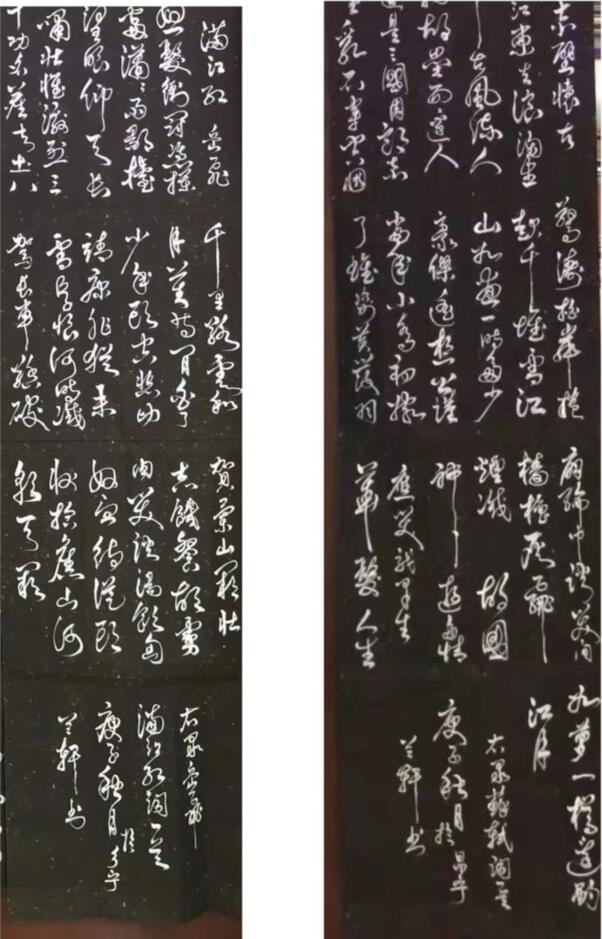 满江红 岳飛
怒髮衝冠憑欄
處瀟々雨歇擡
望眼仰天長
嘯壯懷激烈三
十功名塵与土八
千里路雲和
月莫等閒白了
少年頭空悲切
靖康耻猶未
雪臣恨何時滅
駕長車踏破
賀蘭山缺壯
志飢餐胡虜
肉笑談渴飲匈
奴血待從頭
收拾舊山河
朝天闕
右录岳飛
满江红詞一首
庚子秋月於昌宁
兰軒书
赤壁懷古
江東去浪淘盡
千古風流人
物故壘西邊人
道是三國周郎赤
壁亂石穿空
驚濤拍岸捲
起千堆雪江
山如畫一時多少
豪傑遙想公瑾
當年小喬初嫁
了雄姿英發羽
扇綸巾談笑间
檣櫓灰飛
煙滅 故國
神遊多情
應笑我早生
華髮 人生
如夢一樽還酹
江月
右录蘇軾詞一首
庚子秋月於昌宁
兰軒书